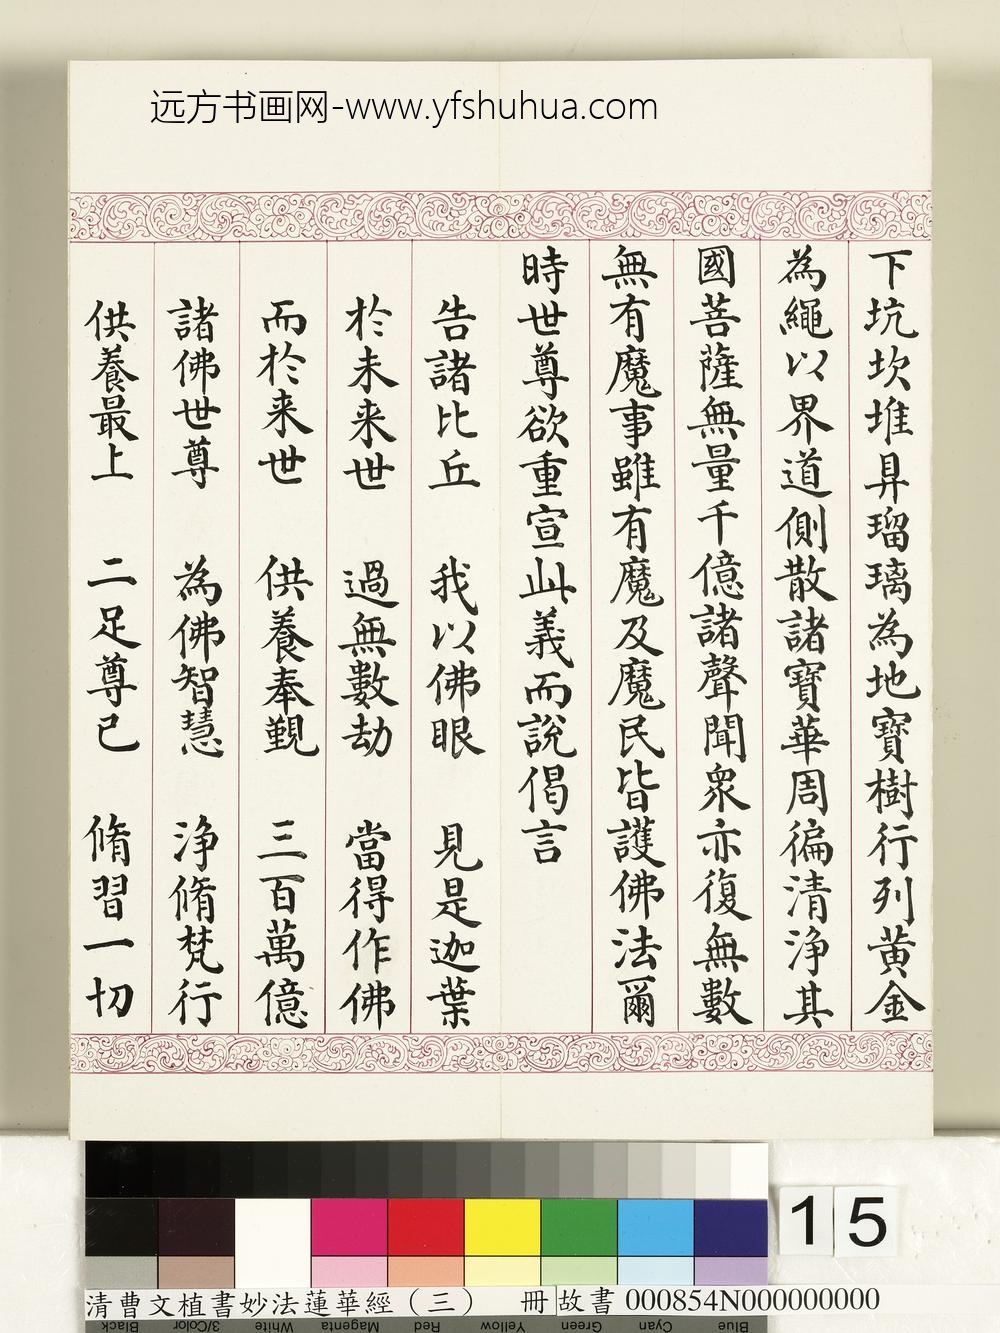 远方书画网-www.yfshuhua.com
下坑坎堆阜瑠璃為地寶樹行列黃金
為繩以界道側散諸寶華周徧清淨其
國菩薩無量千億諸聲聞眾亦復無數
無有魔事雖有魔及魔民皆護佛法爾
時世尊欲重宣此義而說偈言
告諸比丘 我以佛眼 見是迦葉
於未来世 過無數劫 當得作佛
而於来世 供養奉覲 三百萬億
諸佛世尊 為佛智慧 淨脩梵行
供養最上 二足尊已 脩習一切
15
清曹文植書妙法蓮華經（三） 冊 故書 000854N000000000
Black 3/Color White Magenta Red Yellow Green Cyan Blue